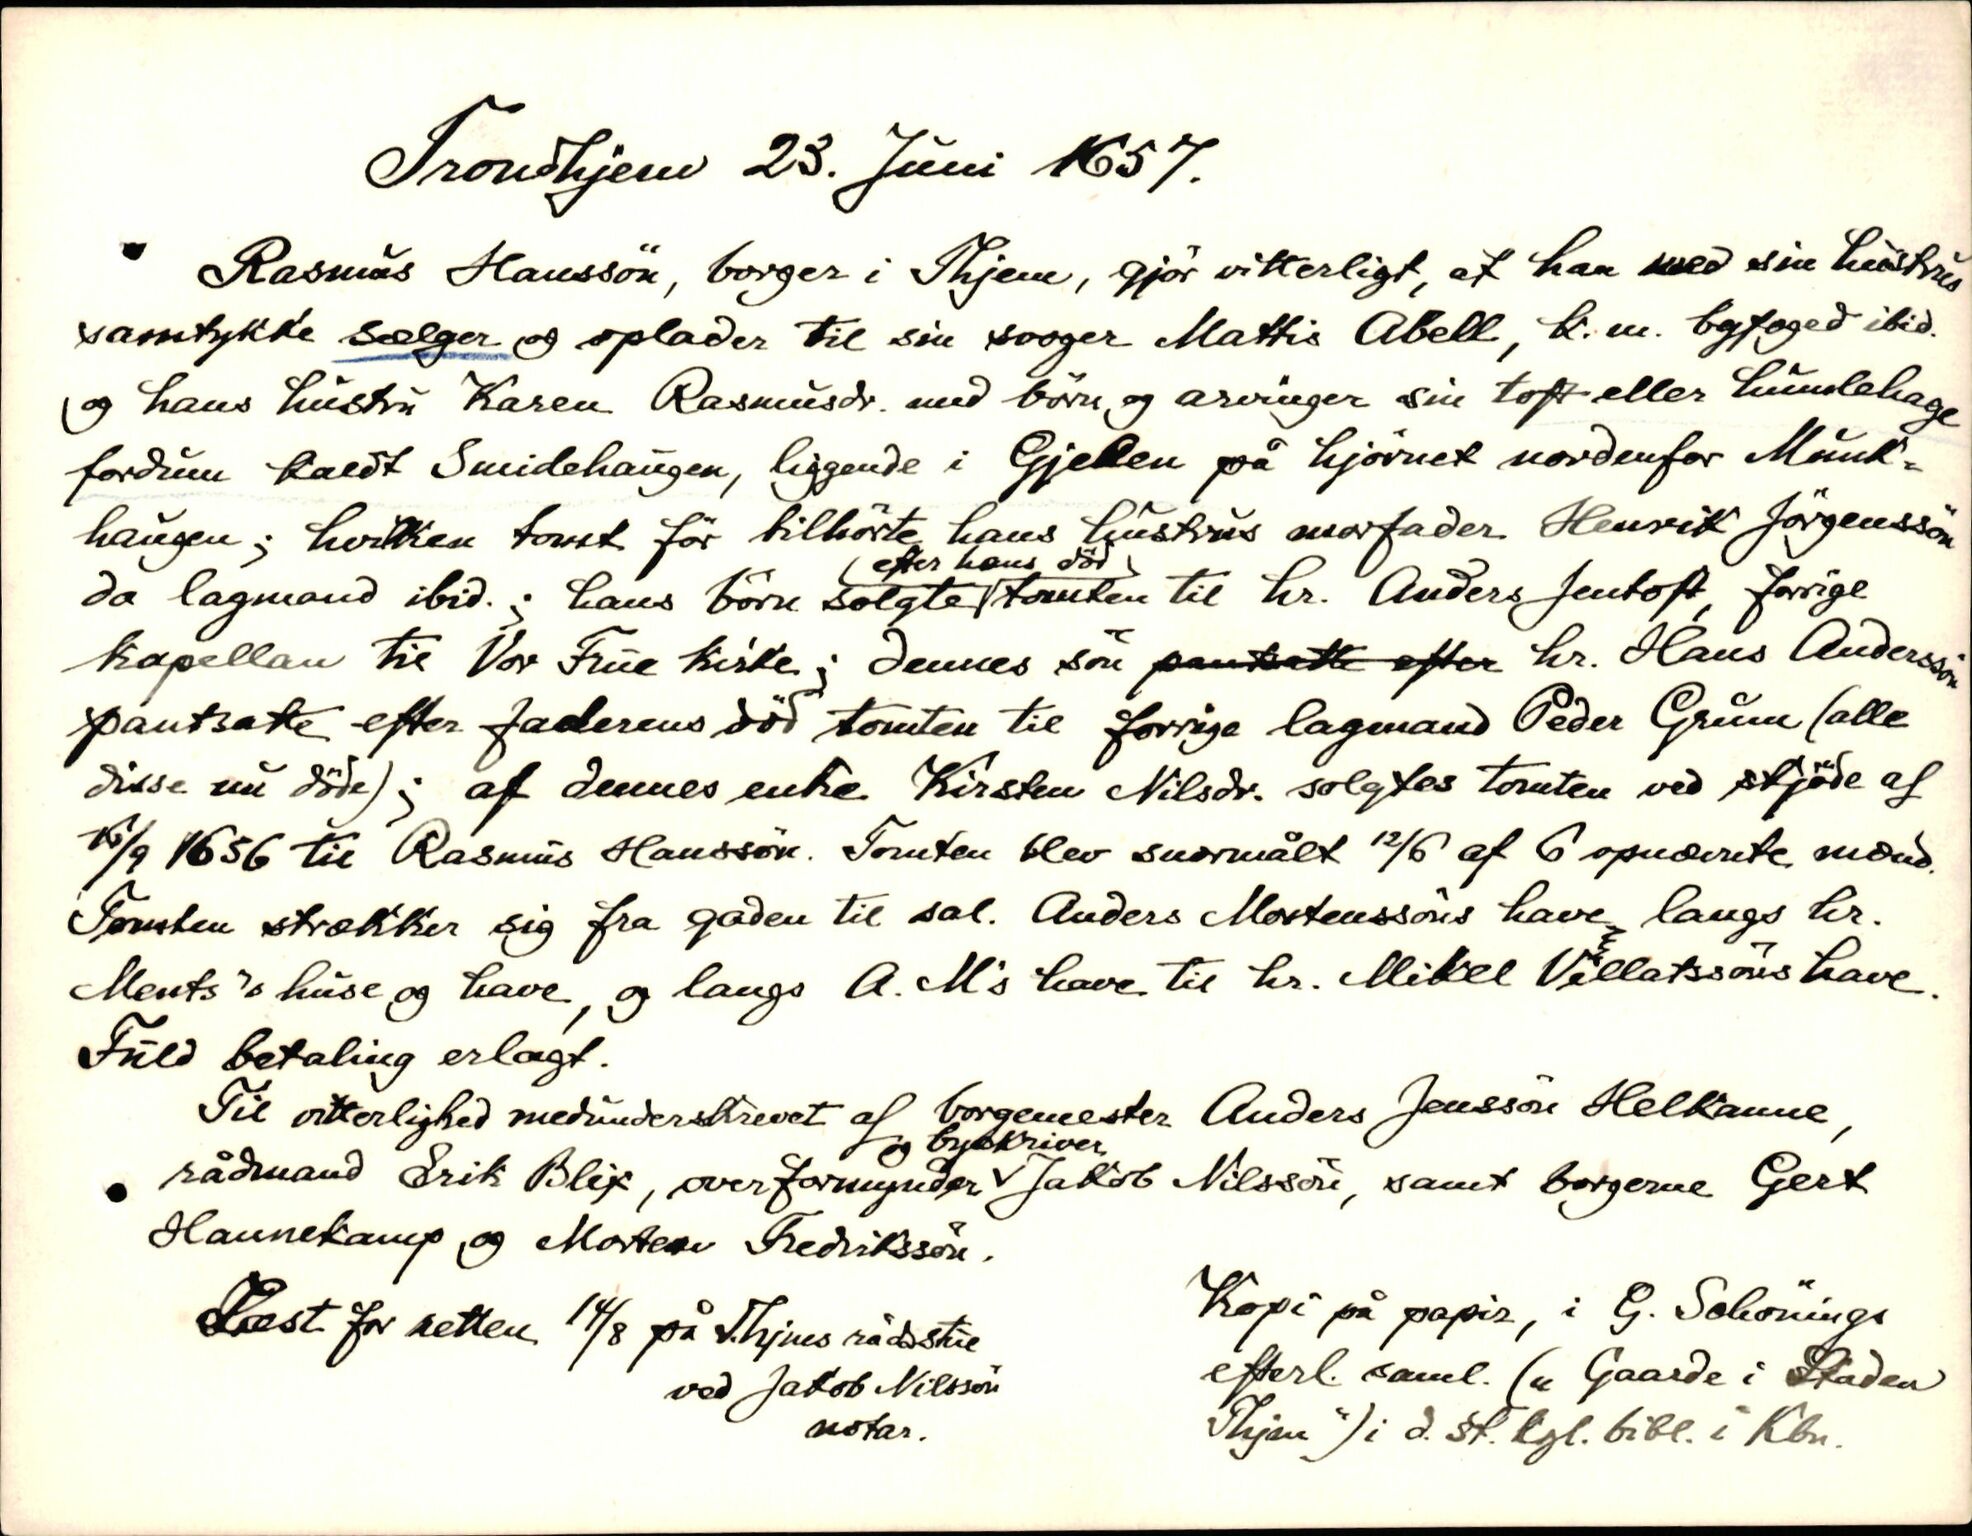 Trondhjem 23. Juni 1657.
Rasmus Hanssön, borger i Thjem, gjör vitterligt, at han med sin hustrus
samtykke sælger og oplader til sin svoger Mattis Abell, k. m. byfoged ibid.
og hans hustru Karen Rasmusdr. med börn og arvinger sin toft eller humlehage
fordum kaldt Smidehaugen, liggende i Gjellen på hjörnet nordenfor Munk-
haugen; hvilken tomt för tilhörte hans hustrus morfader Henrik Jörgenssön
da lagmand ibid.; hans börn solgte (efter hans död) tomten til hr. Anders Jentoft, forrige
kapellan til Vor Frue kirke; dennes sön pantsatte efter hr. Hans Anderssön
pantsatte efter faderens död tomten til forrige lagmand Peder Grum (alle
disse nu döde); af dennes enke Kirsten Nilsdr. solgtes tomten ved skjöde af
16/9 1656 til Rasmus Hanssön. Tomten blev snormålt 12/6 af 6 opnævnte mænd.
Tomten strækker sig fra gaden til sal. Anders Mortenssöns have, langs hr.
Ments's huse og have, og langs A. M's have til hr. Mikel Villatssöns have.
Fuld betaling erlagt.
Til vitterlighed medunderskrevet af borgemester Anders Jenssön Helkanne,
rådmand Erik Blix, overformynder og byskriver Jakob Nilssön, samt borgerne Gert
Hannekamp og Morten Fredrikssön.
Læst for retten 14/8 på Thjms rådstue
ved Jakob Nilssön
notar.
Kopi på papir, i G. Schönings
efterl. saml. („Gaarde i Staden
Thjem“) i d. st. kgl. bibl. i Kbn.